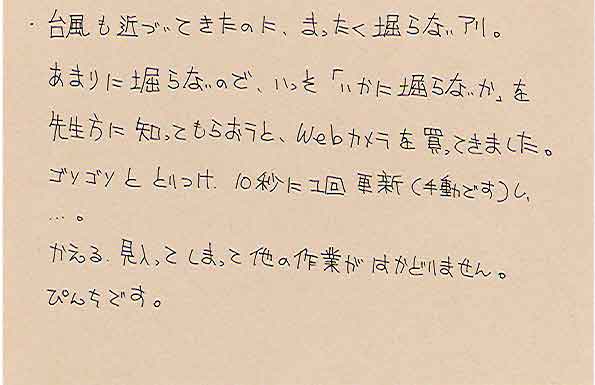 ・台風も近づいてきたのに、まったく掘らないアリ。
あまりに掘らないので、いっそ「いかに掘らないか」を
先生方に知ってもらおうと、Webカメラを買ってきました。
ゴソゴソととりつけ、10秒に1回更新(手動です)し、
…。
かえる。見入ってしまって他の作業がはかどりません。
ぴんちです。